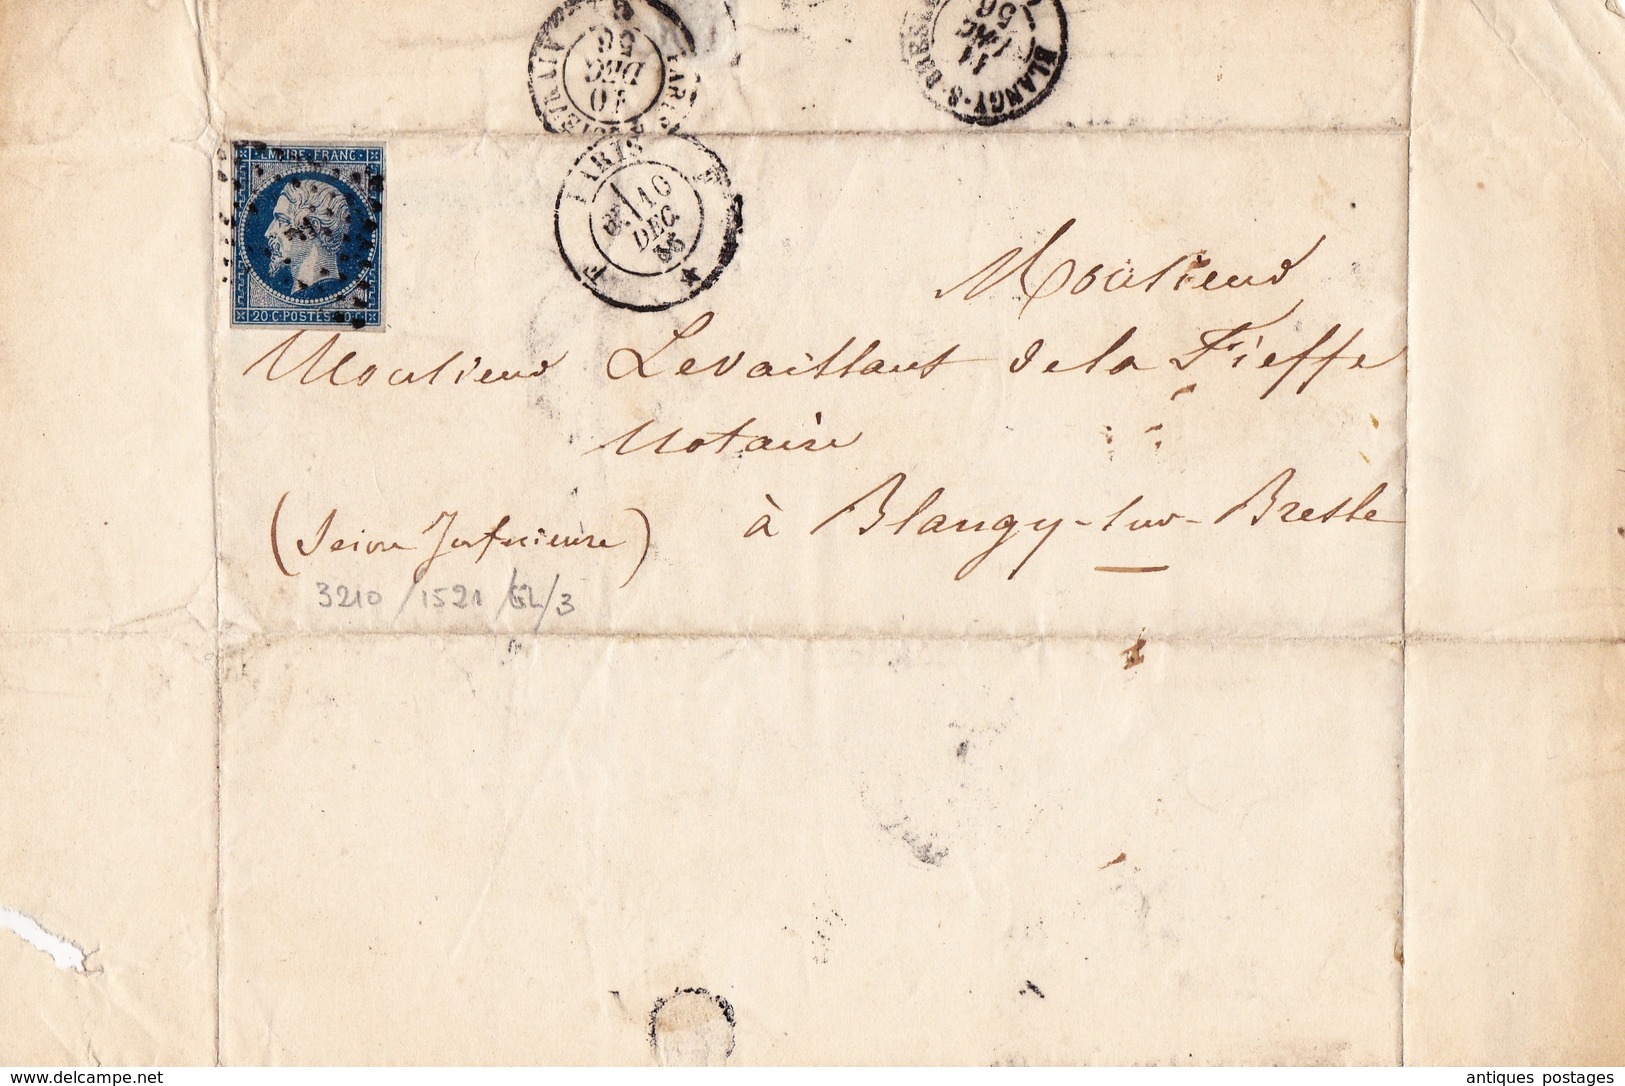 PARIS
10
DEC
56
BLANGY-S-BRESLE
11
DEC
56
EMPIRE · FRANC ·
20 · C · POSTES · 20 · C
PARIS
10
DEC
56
Monsieur
Monsieur Levaillant de la Fieffe
Notaire
à Blangy-sur-Bresle
(Seine Inférieure)
3210 / 1521 / / 3
www.delcampe.net
antiques postages